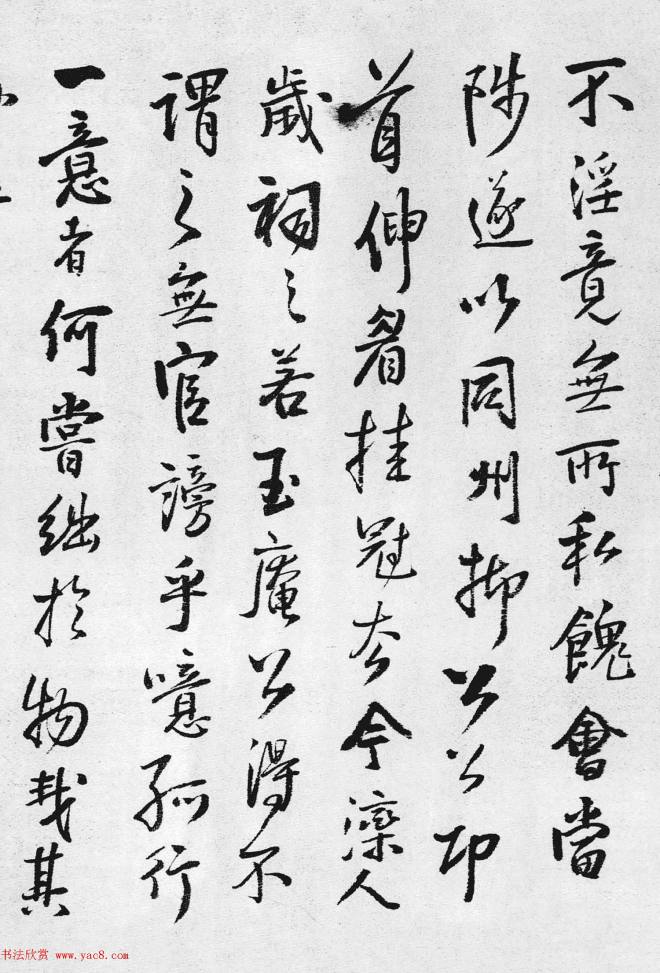 不淫竟無所私餽會當
陟遂以同州抑公公印
首伸眉挂冠去今灤人
歲祠之若玉庵公得不
謂之無官謗乎噫孤行
一意者何嘗絀於物哉其
书法欣赏 www.yac8.com